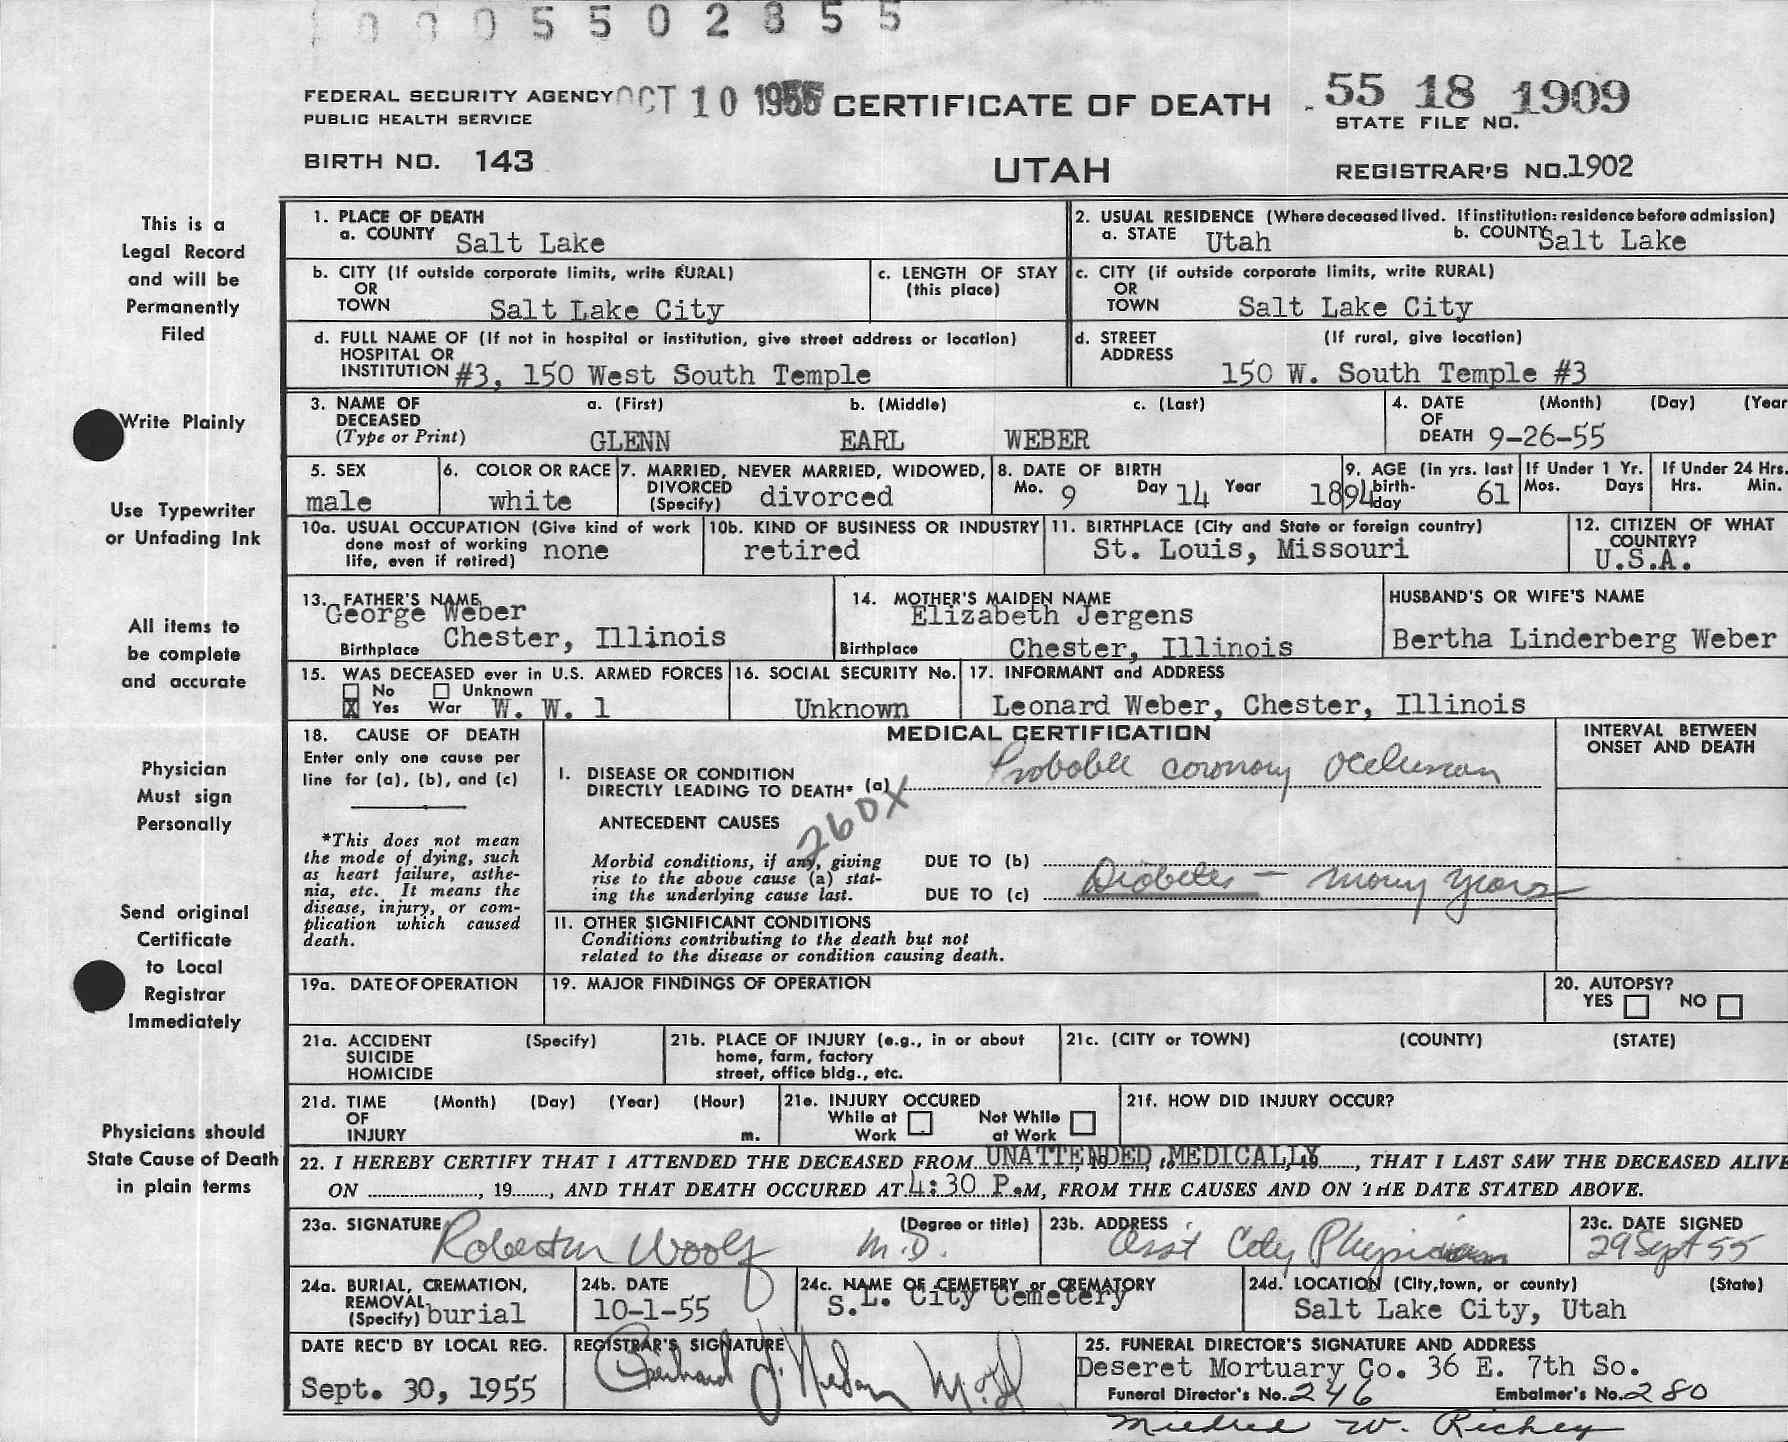 0005502855
FEDERAL SECURITY AGENCY OCT 10 1955 CERTIFICATE OF DEATH 55 18 1909
PUBLIC HEALTH SERVICE STATE FILE NO.
BIRTH NO. 143 UTAH REGISTRAR'S NO. 1902
This is a
Legal Record
and will be
Permanently
Filed
Write Plainly
Use Typewriter
or Unfading Ink
All items to
be complete
and accurate
Physician
Must sign
Personally
Send original
Certificate
to Local
Registrar
Immediately
Physicians should
State Cause of Death
in plain terms
1. PLACE OF DEATH
a. COUNTY Salt Lake
2. USUAL RESIDENCE (Where deceased lived. If institution: residence before admission)
a. STATE Utah b. COUNTY Salt Lake
b. CITY (If outside corporate limits, write RURAL)
OR
TOWN Salt Lake City
c. LENGTH OF STAY
(this place)
c. CITY (if outside corporate limits, write RURAL)
OR
TOWN Salt Lake City
d. FULL NAME OF (If not in hospital or institution, give street address or location)
HOSPITAL OR
INSTITUTION #3, 150 West South Temple
d. STREET (If rural, give location)
ADDRESS
150 W. South Temple #3
3. NAME OF a. (First) b. (Middle) c. (Last)
DECEASED
(Type or Print) GLENN EARL WEBER
4. DATE (Month) (Day) (Year
OF
DEATH 9-26-55
5. SEX
male
6. COLOR OR RACE
white
7. MARRIED, NEVER MARRIED, WIDOWED,
DIVORCED
(Specify) divorced
8. DATE OF BIRTH
Mo. 9 Day 14 Year 1894
9. AGE (in yrs. last
birth-
day 61
If Under 1 Yr.
Mos. Days
If Under 24 Hrs.
Hrs. Min.
10a. USUAL OCCUPATION (Give kind of work
done most of working
life, even if retired) none
10b. KIND OF BUSINESS OR INDUSTRY
retired
11. BIRTHPLACE (City and State or foreign country)
St. Louis, Missouri
12. CITIZEN OF WHAT
COUNTRY?
U.S.A.
13. FATHER'S NAME
George Weber
Birthplace Chester, Illinois
14. MOTHER'S MAIDEN NAME
Elizabeth Jergens
Birthplace Chester, Illinois
HUSBAND'S OR WIFE'S NAME
Bertha Linderberg Weber
15. WAS DECEASED ever in U.S. ARMED FORCES
No Unknown
X Yes War W. W. 1
16. SOCIAL SECURITY No.
Unknown
17. INFORMANT and ADDRESS
Leonard Weber, Chester, Illinois
18. CAUSE OF DEATH
Enter only one cause per
line for (a), (b), and (c)
*This does not mean
the mode of dying, such
as heart failure, asthe-
nia, etc. It means the
disease, injury, or com-
plication which caused
death.
MEDICAL CERTIFICATION
INTERVAL BETWEEN
ONSET AND DEATH
I. DISEASE OR CONDITION
DIRECTLY LEADING TO DEATH* (a) Probable coronary occlusion
260X
ANTECEDENT CAUSES
Morbid conditions, if any, giving DUE TO (b)
rise to the above cause (a) stat-
ing the underlying cause last. DUE TO (c) Diabetes - many years
II. OTHER SIGNIFICANT CONDITIONS
Conditions contributing to the death but not
related to the disease or condition causing death.
19a. DATE OF OPERATION
19. MAJOR FINDINGS OF OPERATION
20. AUTOPSY?
YES NO
21a. ACCIDENT (Specify)
SUICIDE
HOMICIDE
21b. PLACE OF INJURY (e.g., in or about
home, farm, factory
street, office bldg., etc.
21c. (CITY or TOWN) (COUNTY) (STATE)
21d. TIME (Month) (Day) (Year) (Hour)
OF
INJURY m.
21e. INJURY OCCURED
While at Not While
Work at Work
21f. HOW DID INJURY OCCUR?
22. I HEREBY CERTIFY THAT I ATTENDED THE DECEASED FROM UNATTENDED MEDICALLY, THAT I LAST SAW THE DECEASED ALIVE
ON ........, 19......, AND THAT DEATH OCCURED AT 4:30 P.M, FROM THE CAUSES AND ON THE DATE STATED ABOVE.
23a. SIGNATURE (Degree or title)
Woolf M.D.
23b. ADDRESS
Asst City Physician
23c. DATE SIGNED
29 Sept 55
24a. BURIAL, CREMATION,
REMOVAL
(Specify) burial
24b. DATE
10-1-55
24c. NAME OF CEMETERY or CREMATORY
S.L. City Cemetery
24d. LOCATION (City, town, or county) (State)
Salt Lake City, Utah
DATE REC'D BY LOCAL REG.
Sept. 30, 1955
REGISTRAR'S SIGNATURE
M.D.
25. FUNERAL DIRECTOR'S SIGNATURE AND ADDRESS
Deseret Mortuary Co. 36 E. 7th So.
Funeral Director's No. 246 Embalmer's No. 280
Mildred W. Richey